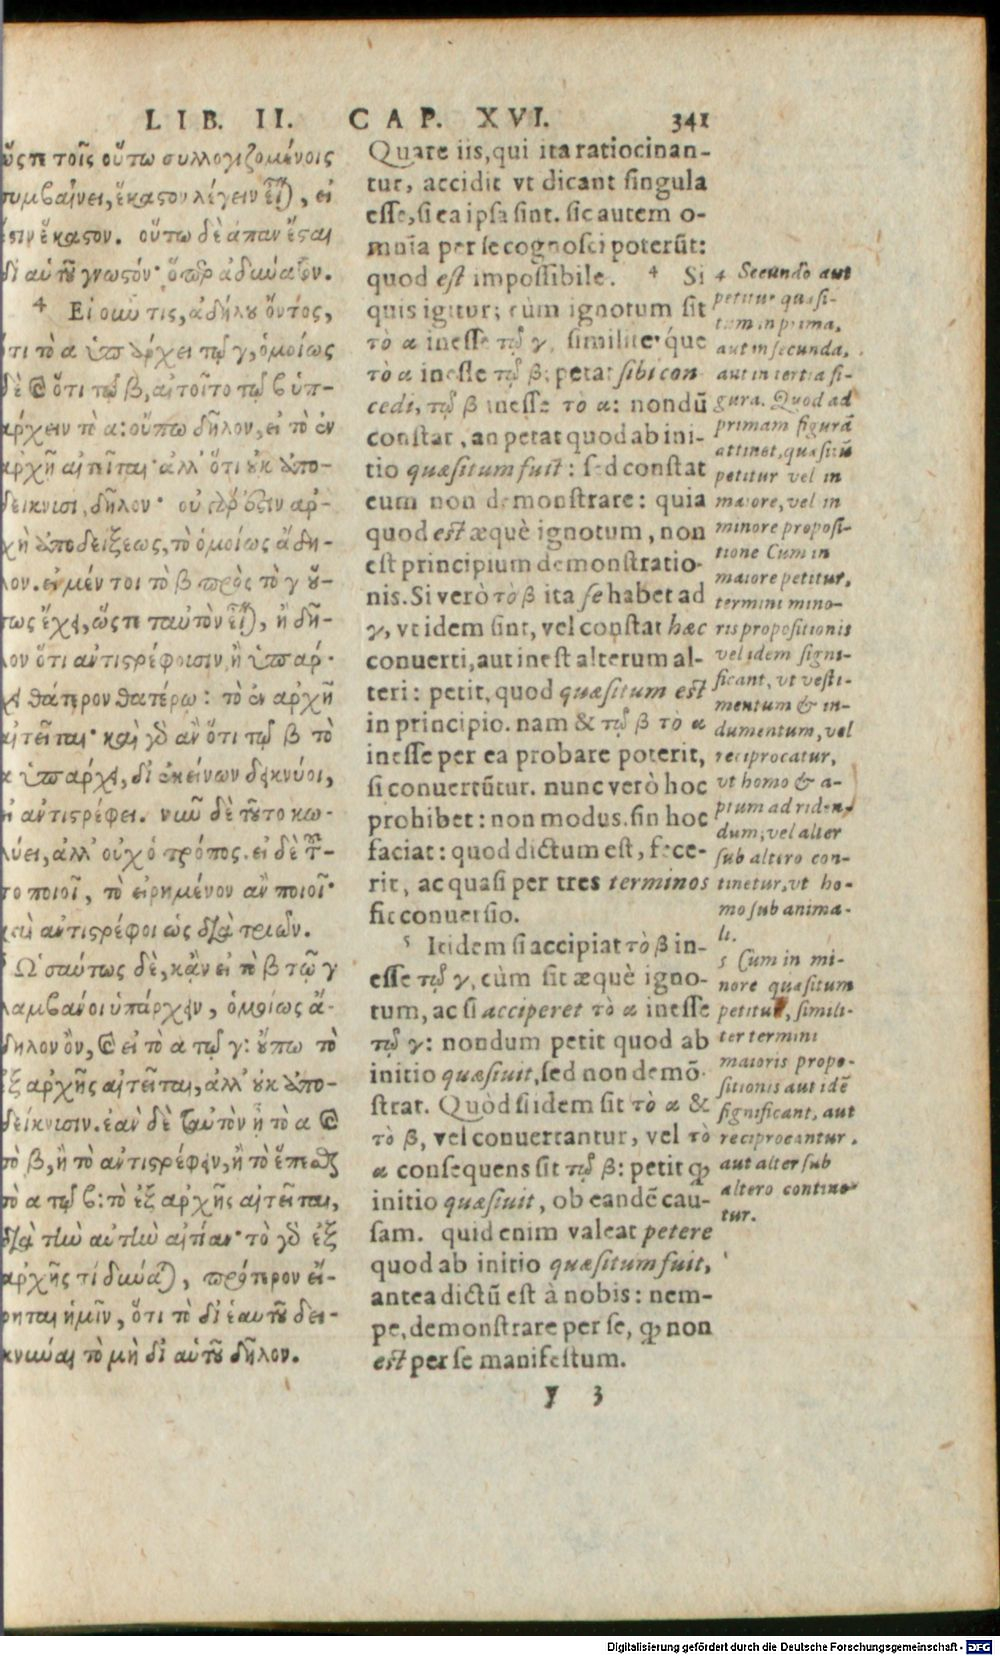 LIB. II. CAP. XVI. 341
ὥςτε τοῖς οὕτω συλλογιζομένοις
συμβαίνει, ἕκαστον λέγειν εἶ), εἰ
ἐστιν ἕκαστον. οὕτω δὲ ἅπαν ἔσται
δι' αὑτοῦ γνωστόν· ὅπερ ἀδύνατον.
4 Εἰ οὖν τις, ἀδήλου ὄντος,
ὅτι τὸ α ὑπάρχει τῷ γ, ὁμοίως
δὲ καὶ ὅτι τῷ β, αἰτοῖτο τῷ β ὑπ-
άρχειν τὸ α: οὔπω δῆλον, εἰ τὸ ἐν
ἀρχῇ αἰτεῖται· ἀλλ' ὅτι οὐκ ἀπο-
δείκνυσι, δῆλον· οὐ γάρ ἐστιν ἀρ-
χὴ ἀποδείξεως, τὸ ὁμοίως ἄδη-
λον. εἰ μέν τοι τὸ β πρὸς τὸ γ οὕ-
τως ἔχει, ὥςτε ταυτὸν εἶ), ἢ δῆ-
λον ὅτι ἀντιστρέφουσιν, ἢ ὑπάρ-
χει θάτερον θατέρῳ: τὸ ἐν ἀρχῇ
αἰτεῖται· καὶ γὸ ἂν ὅτι τῷ β τὸ
α ὑπάρχει, δι' ἐκείνων δεικνύοι,
εἰ ἀντιστρέφει. νῦν δὲ τοῦτο κω-
λύει, ἀλλ' οὐχ ὁ τρόπος. εἰ δὲ τοῦ-
το ποιοῖ, τὸ εἰρημένον ἂν ποιοῖ·
καὶ ἀντιστρέφοι ὡς διὰ τριῶν.
5 Ὡσαύτως δὲ, κἂν εἰ τὸ β τῷ γ
λαμβάνοι ὑπάρχειν, ὁμοίως ἄ-
δηλον ὂν, καὶ εἰ τὸ α τῷ γ: οὔπω τὸ
ἐξ ἀρχῆς αἰτεῖται, ἀλλ' οὐκ ἀπο-
δείκνυσιν. ἐὰν δὲ ταὐτὸν ᾖ τὸ α καὶ
τὸ β, ἢ τὸ ἀντιστρέφειν, ἢ τὸ ἕπεσθαι
τὸ α τῷ β: τὸ ἐξ ἀρχῆς αἰτεῖται,
διὰ τὴν αὐτὴν αἰτίαν· τὸ γὸ ἐξ
ἀρχῆς τί δύναται, πρότερον εἴ-
ρηται ἡμῖν, ὅτι τὸ δι' ἑαυτοῦ δει-
κνύναι τὸ μὴ δι' αὑτοῦ δῆλον.
Quare iis, qui ita ratiocinan-
tur, accidit vt dicant singula
esse, si ea ipsa sint. sic autem o-
mnia per se cognosci poterũt:
quod est impossibile. 4 Si
quis igitur; cùm ignotum sit
τὸ α inesse τῷ γ, similitérque
τὸ α inesse τῷ β; petat sibi con
cedi, τῷ β inesse τὸ α: nondũ
constat, an petat quod ab ini-
tio quæsitum fuit: sed constat
eum non demonstrare: quia
quod est æquè ignotum, non
est principium demonstratio-
nis. Si verò τὸ β ita se habet ad
γ, vt idem sint, vel constat hæc
conuerti, aut inest alterum al-
teri: petit, quod quæsitum est
in principio. nam & τῷ β τὸ α
inesse per ea probare poterit,
si conuertũtur. nunc verò hoc
prohibet: non modus. sin hoc
faciat: quod dictum est, fece-
rit, ac quasi per tres terminos
fit conuersio.
5 Itidem si accipiat τὸ β in-
esse τῷ γ, cùm sit æquè igno-
tum, ac si acciperet τὸ α inesse
τῷ γ: nondum petit quod ab
initio quæsiuit, sed non demõ-
strat. Quòd si idem sit τὸ α &
τὸ β, vel conuertantur, vel τὸ
α consequens sit τῷ β: petit ꝙ
initio quæsiuit, ob eandẽ cau-
sam. quid enim valeat petere
quod ab initio quæsitum fuit,
antea dictũ est à nobis: nem-
pe, demonstrare per se, ꝙ non
est per se manifestum.
4 Secundo aut
petitur quæsi-
tum in prima,
aut in secunda,
aut in tertia fi-
gura. Quod ad
primam figurã
attinet, quæsitũ
petitur vel in
maiore, vel in
minore proposi-
tione Cum in
maiore petitur,
termini mino-
ris propositionis
vel idem signi-
ficant, vt vesti-
mentum & in-
dumentum, vel
reciprocatur,
vt homo & a-
ptum ad riden-
dum; vel alter
sub altero con-
tinetur, vt ho-
mo sub anima-
li.
5 Cum in mi-
nore quæsitum
petitur, simili-
ter termini
maioris propo-
sitionis aut idẽ
significant, aut
reciprocantur,
aut alter sub
altero contine-
tur.
y 3
Digitalisierung gefördert durch die Deutsche Forschungsgemeinschaft - DFG